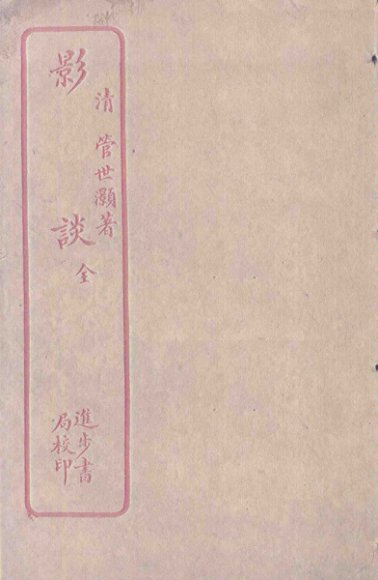 清 管世灝著
影談 全
進步書
局校印